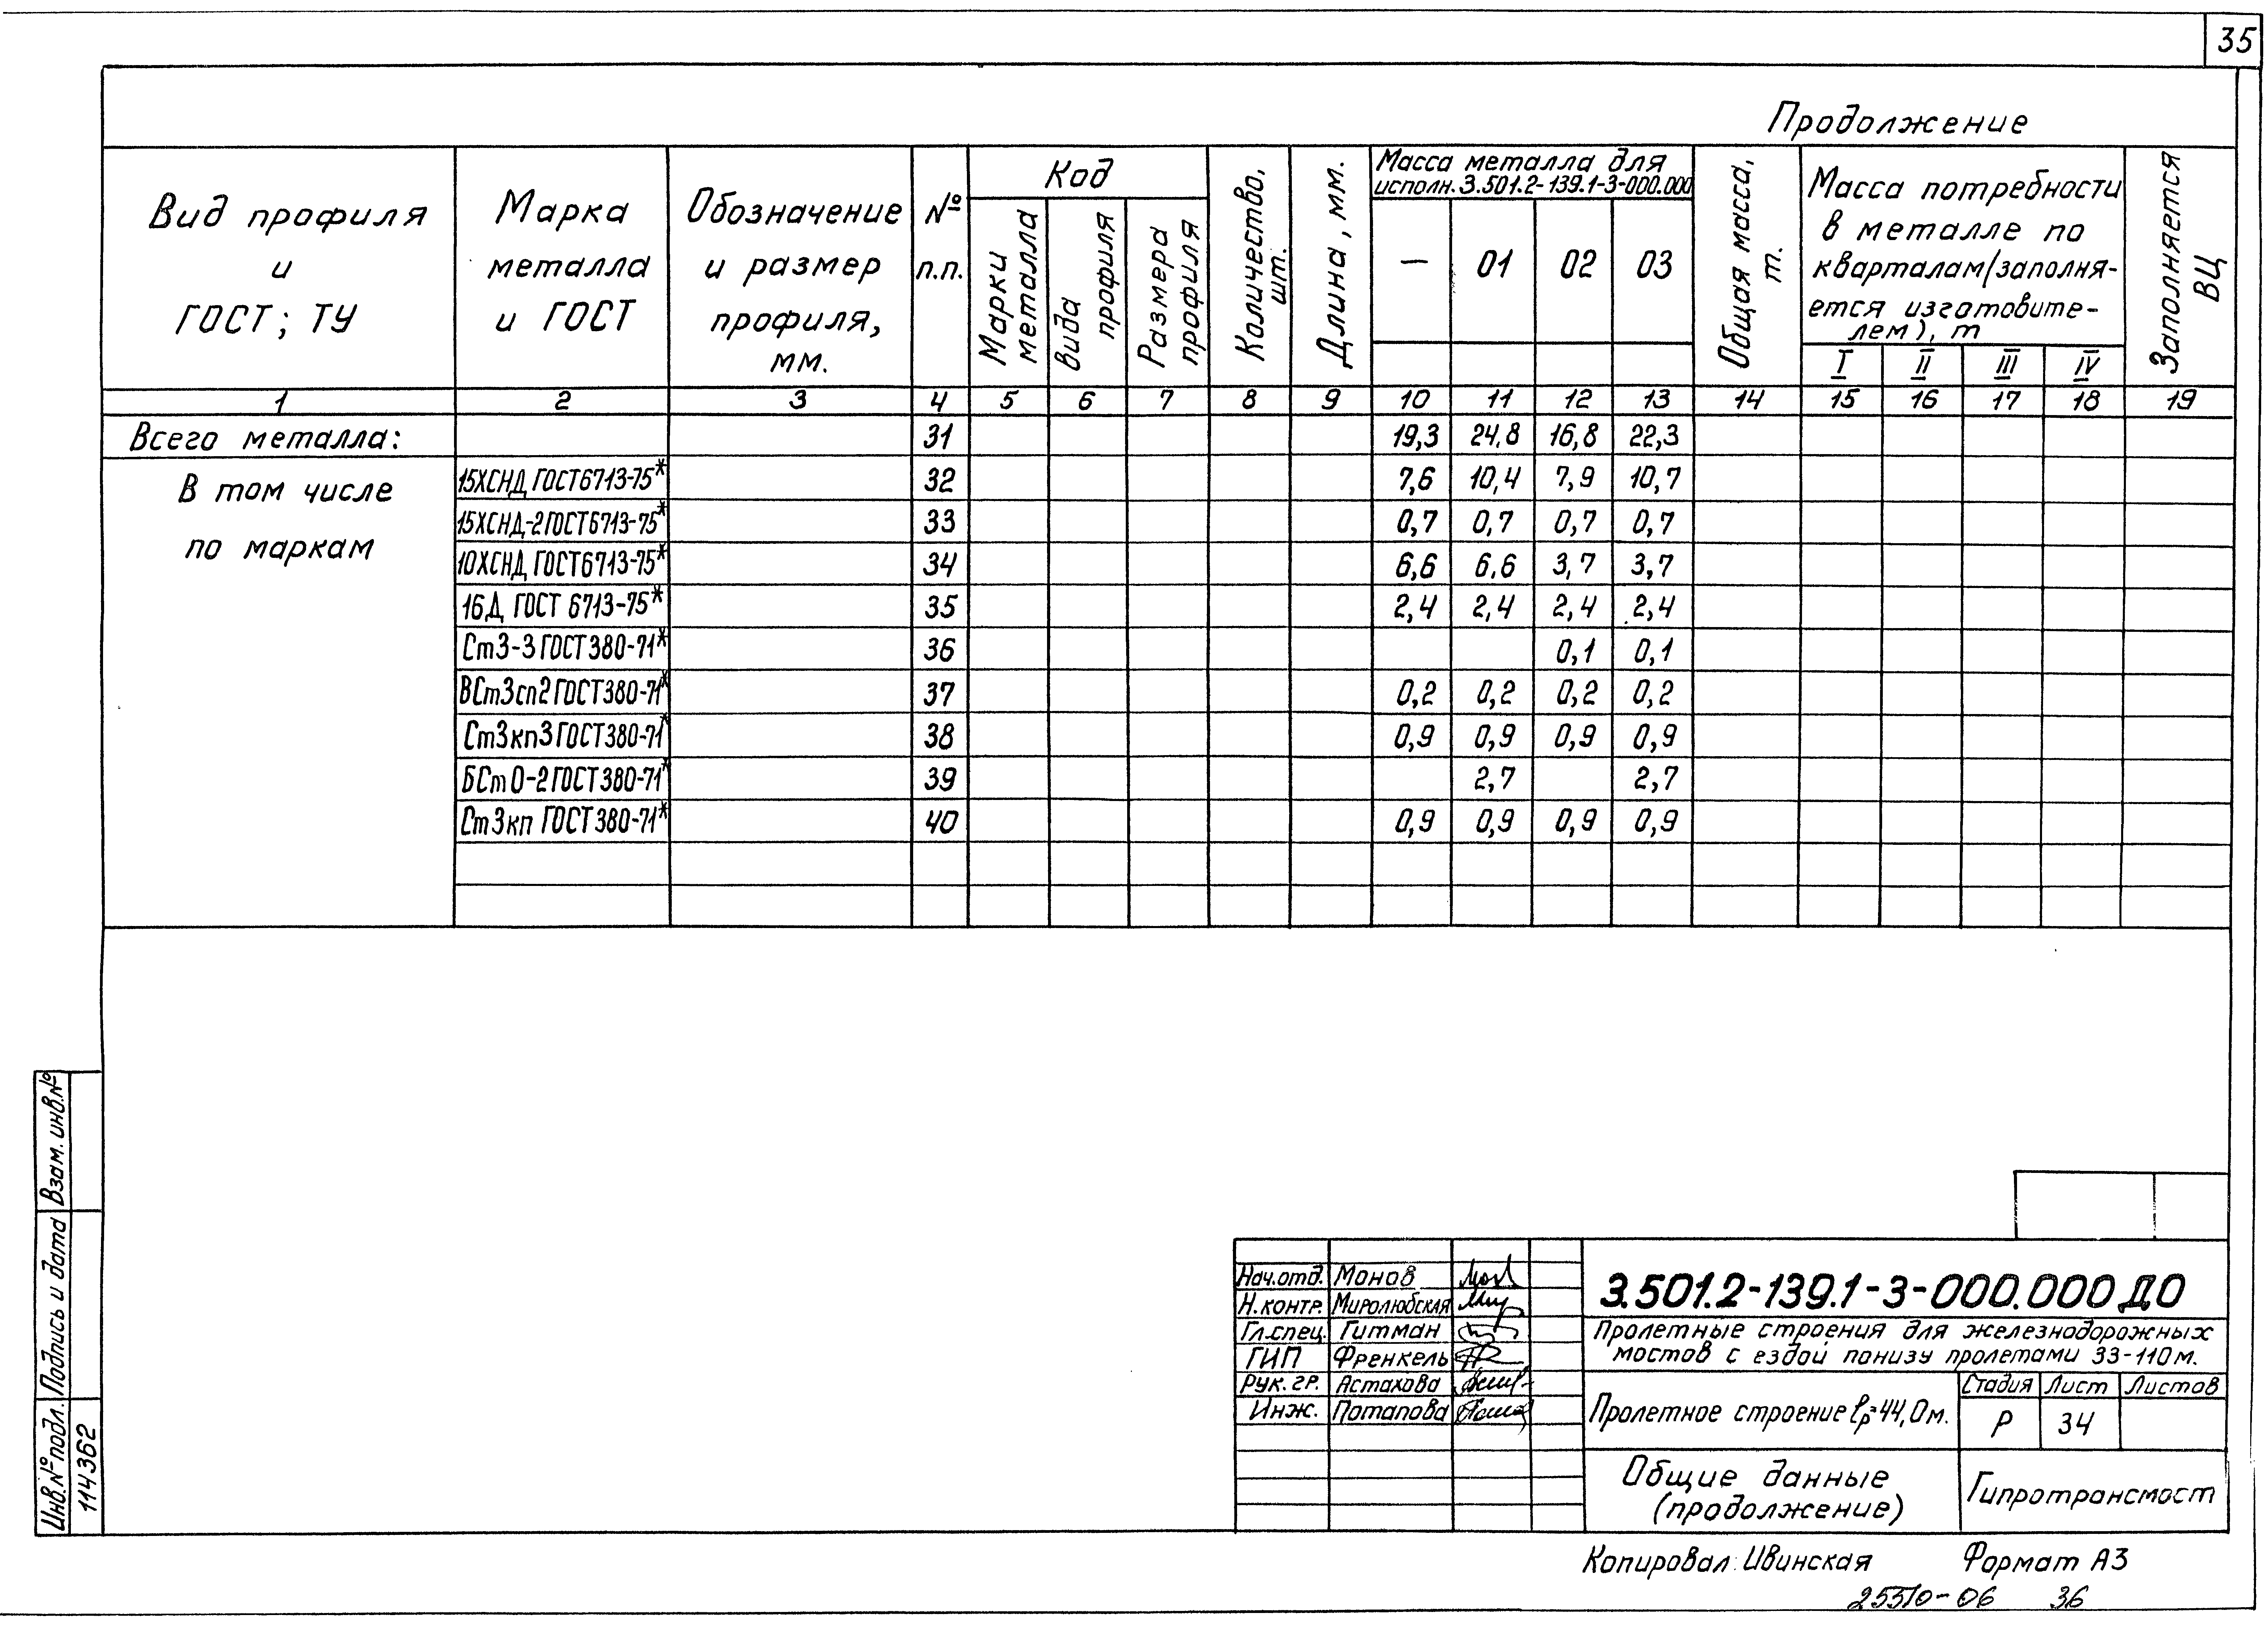 35
Продолжение
Вид профиля
и
ГОСТ; ТУ
Марка
металла
и ГОСТ
Обозначение
и размер
профиля,
мм.
№
п.п.
Код
Марки
металла
Вида
профиля
Размера
профиля
Количество,
шт.
Длина, мм.
Масса металла для
исполн. 3.501.2-139.1-3-000.000
— 01 02 03
Общая масса,
т.
Масса потребности
в металле по
кварталам/заполня-
ется изготовите-
лем), т
I II III IV
Заполняется
ВЦ
1 2 3 4 5 6 7 8 9 10 11 12 13 14 15 16 17 18 19
Всего металла: 31 19,3 24,8 16,8 22,3
В том числе
по маркам
15ХСНД ГОСТ6713-75* 32 7,6 10,4 7,9 10,7
15ХСНД-2ГОСТ6713-75* 33 0,7 0,7 0,7 0,7
10ХСНД ГОСТ6713-75* 34 6,6 6,6 3,7 3,7
16Д ГОСТ 6713-75* 35 2,4 2,4 2,4 2,4
Ст3-3 ГОСТ380-71* 36 0,1 0,1
ВСт3сп2 ГОСТ380-71* 37 0,2 0,2 0,2 0,2
Ст3кп3 ГОСТ380-71* 38 0,9 0,9 0,9 0,9
БСт0-2 ГОСТ380-71* 39 2,7 2,7
Ст3кп ГОСТ380-71* 40 0,9 0,9 0,9 0,9
Взам. инв.№
Подпись и дата
Инв.№ подл.
114362
Нач.отд. Монов
Н.контр. Миролюбская
Гл.спец. Гитман
ГИП Френкель
Рук. гр. Астахова
Инж. Потапова
3.501.2-139.1-3-000.000 ДО
Пролетные строения для железнодорожных
мостов с ездой понизу пролетами 33-110м.
Пролетное строение lр=44,0м.
Стадия Лист Листов
Р 34
Общие данные
(продолжение)
Гипротрансмост
Копировал: Ивинская Формат А3
25510-06 36